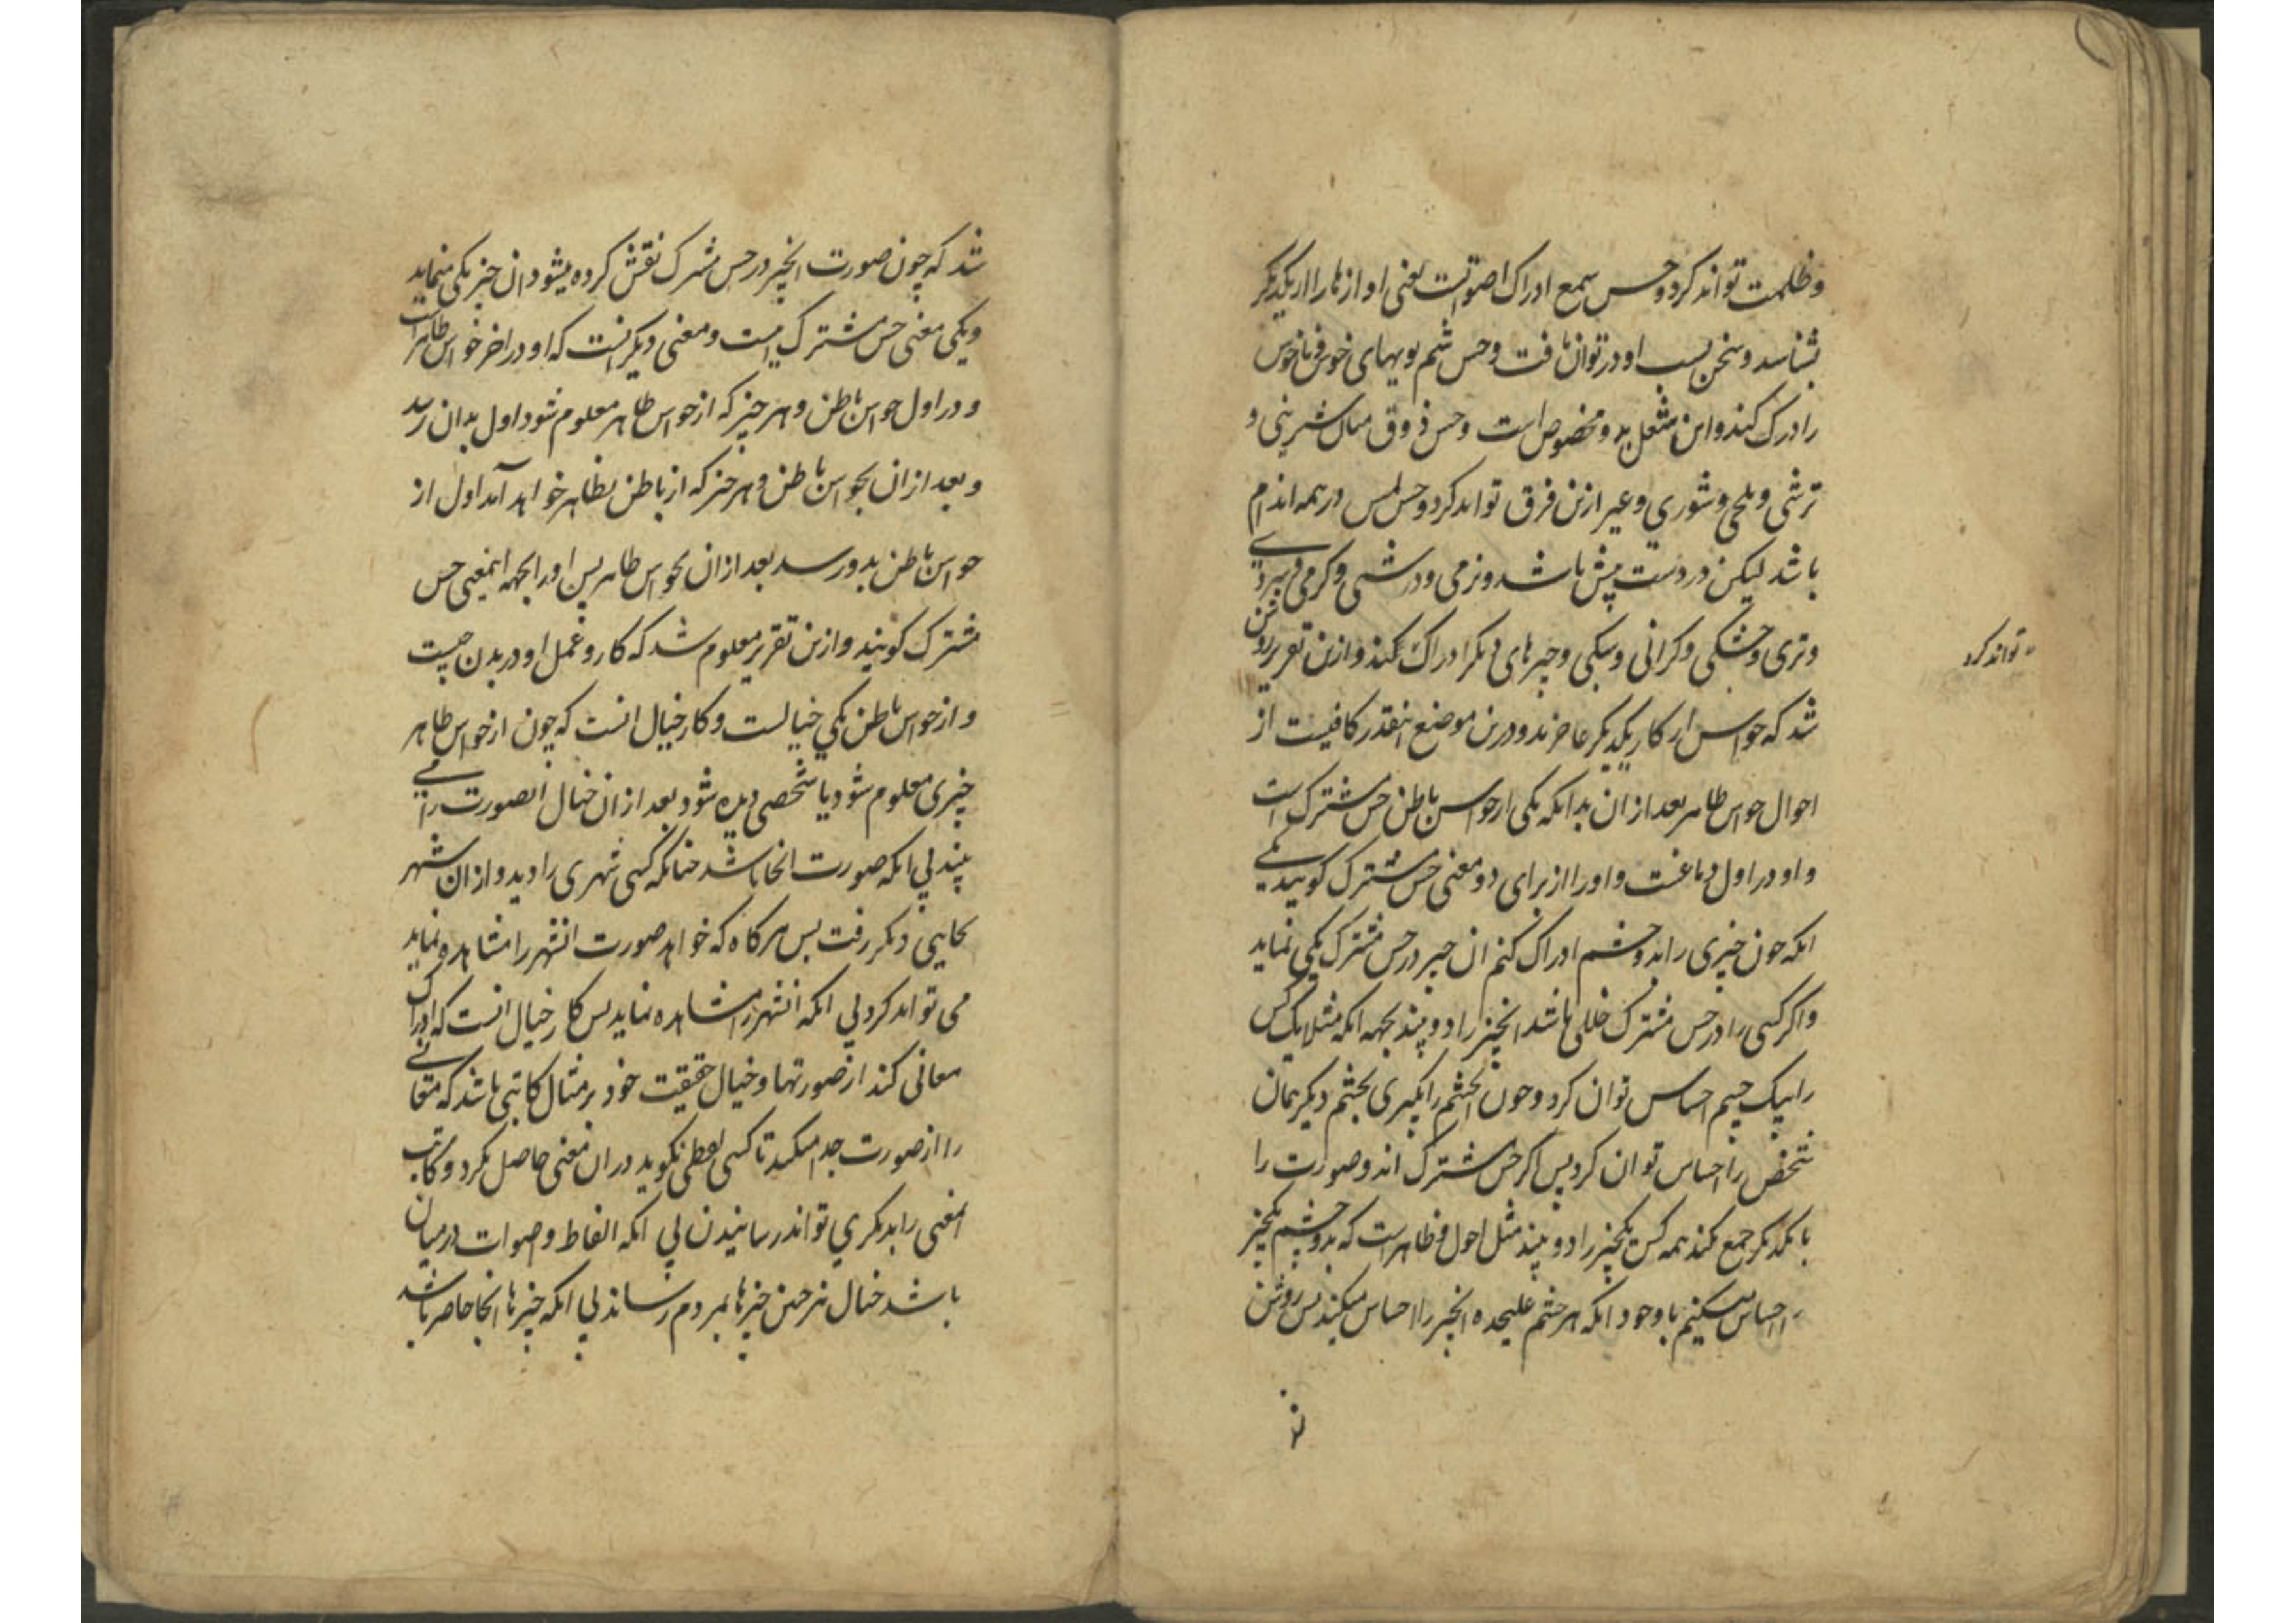 وظلمت تواند کرد و حس سمع ادراک اصواتست یعنی اوازها را از یکدیکر
بشناسد و سخن بسبب او در توان یافت و حس شم بویهای خوش و ناخوش
را درک کند و این شغل بدو مخصوص است و حس ذوق میان شیرینی و
ترشی و تلخی و شوری و غیر ازین فرق تواند کرد و حس لمس در همه اندام
باشد لیکن در دست بیش باشد و نرمی و درشتی و کرمی و سردی
وتری و خشکی و کرانی و سبکی و چیزهای دیکر ادراک کند و ازین تقریر روشن
تواند کرد
شد که حواس از کار یکدیکر عاجزند و درین موضع اینقدر کافیست از
احوال حواس ظاهر بعد از ان بدانکه یکی از حواس باطن حس مشترک است
و او در اول دماغست و او را از برای دو معنی حس مشترک کویند یکی
انکه چون چیزی را بدو چشم ادراک کنیم ان چیز در حس مشترک یکی نماید
واکر کسی را در حس مشترک خللی باشد انچیز را دو بیند بجهه انکه مثلا یک کس
را بیک چشم احساس توان کرد و چون انچشم را بکیری بچشم دیکر همان
شخص را احساس توان کرد پس اکر حس مشترک اند و صورت را
با یکدیکر جمع نکند همه کس یکچیز را دو بیند مثل احول و ظاهر است که بدو چشم یکچیز
را احساس میکنیم با وجود انکه هر چشم علیحده انچیز را احساس میکند پس روشن
شد که چون صورت انچیز در حس مشترک نقش کرده میشود ان چیز یکی مینماید
ویکی معنی حس مشترک اینست و معنی دیکر انست که او در اخر حواس ظاهر است
و در اول حواس باطن و هر چیز که از حواس ظاهر معلوم شود اول بدان رسد
و بعد از ان بحواس باطن و هر چیز که از باطن بظاهر خواهد آمد اول از
حواس باطن بدو رسد بعد از ان بحواس ظاهر پس او را بجهه اینمعنی حس
مشترک کویند و ازین تقریر معلوم شد که کار و عمل او در بدن چیست
و از حواس باطن یکی خیالست و کار خیال انست که چون از حواس ظاهر
چیزی معلوم شود یا شخصی دیده شود بعد از ان خیال انصورت را می
بیند بی انکه صورت انجا باشد چنانکه کسی شهری را دید و از ان شهر
بجایی دیکر رفت پس هرکاه که خواهد صورت انشهر را مشاهده نماید
می تواند کرد بی انکه انشهر را مشاهده نماید پس کار خیال انست که ادراک
معانی کند از صورتها و خیال حقیقت خود بر مثال کاتبی باشد که معانی
را از صورت جدا میکند تا کسی لفظی نکوید دران معنی حاصل نکردد و کاتب
انمعنی را بدیکری تواند رسانیدن بی انکه الفاظ و اصوات در میان
باشد خیال نیز چنین چیزها بمردم رساند بی انکه چیزها انجا حاضر باشد